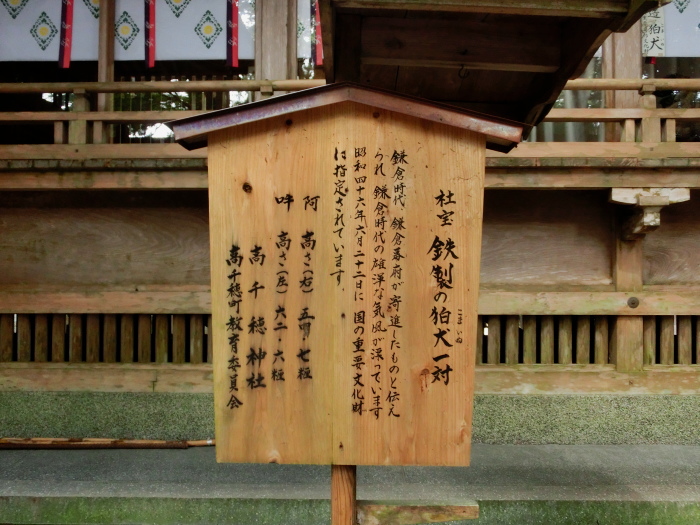 社宝 鉄製の狛犬一対
こまいぬ
鎌倉時代、鎌倉幕府が寄進したものと伝え
られ、鎌倉時代の雄渾な気風が漂っています
昭和四十六年六月二十二日に 国の重要文化財
に指定されています。
阿 高さ(右) 五四・七糎
吽 高さ(左) 六二・六糎
高千穂神社
高千穂町教育委員会
狛犬